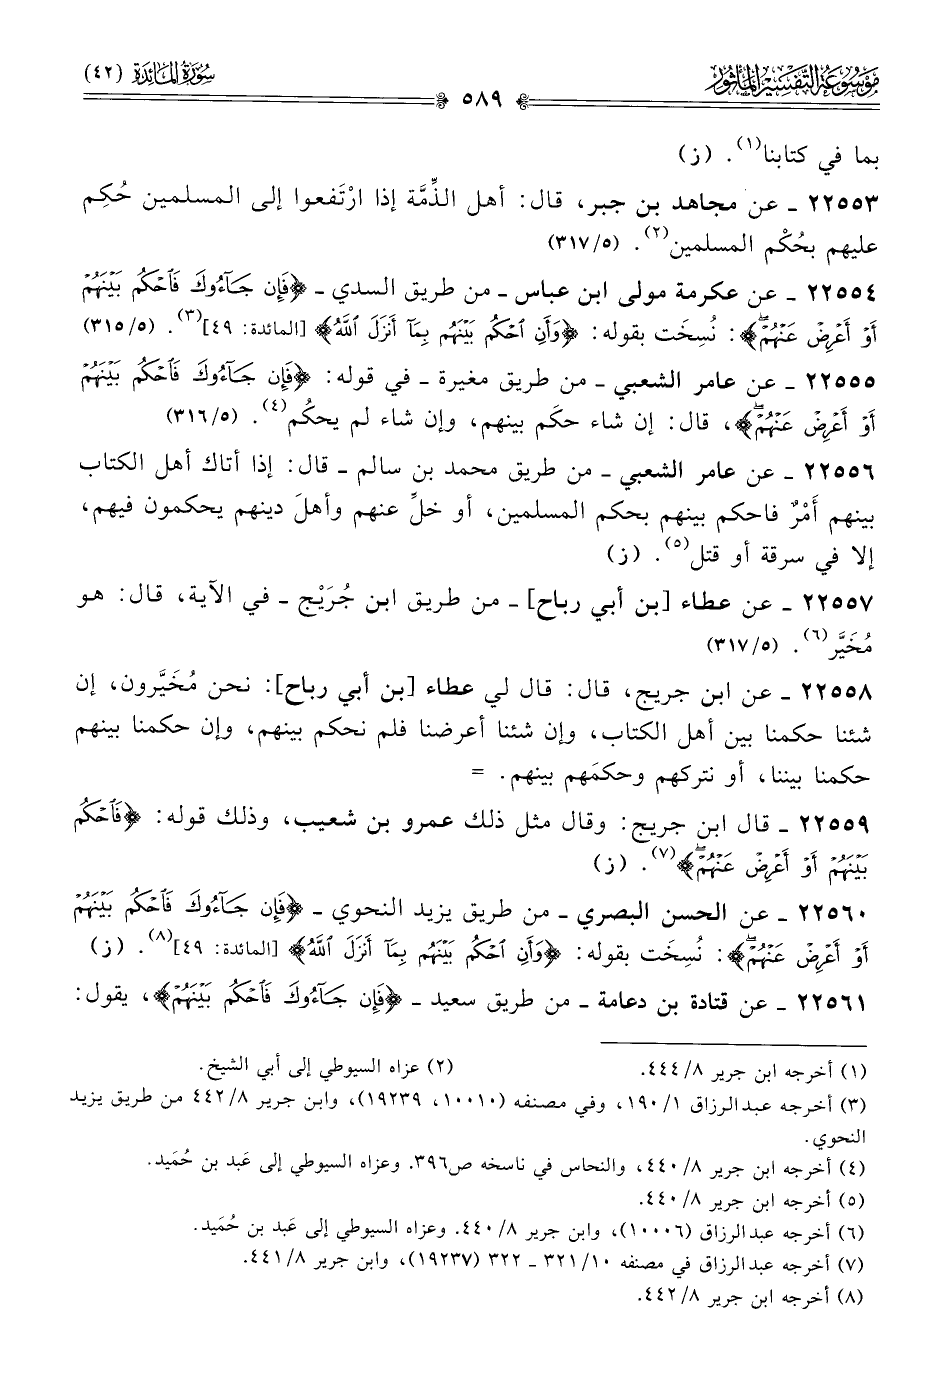 مَوْسُوعَةُ التَّفْسِيرِ الْمَأْثُورِ
سُورَةُ المَائِدَة (٤٢)
٥٨٩
بما في كتابنا(١). (ز)
٢٢٥٥٣ ـ عن مجاهد بن جبر، قال: أهل الذِّمَّة إذا ارْتَفعوا إلى المسلمين حُكِم
عليهم بحُكْم المسلمين(٢). (٣١٧/٥)
٢٢٥٥٤ ـ عن عكرمة مولى ابن عباس ـ من طريق السدي ـ ﴿فَإِن جَآءُوكَ فَٱحْكُم بَيْنَهُمْ
أَوْ أَعْرِضْ عَنْهُمْ ۖ﴾: نُسِخَت بقوله: ﴿وَأَنِ ٱحْكُم بَيْنَهُم بِمَآ أَنزَلَ ٱللَّهُ﴾ [المائدة: ٤٩](٣). (٣١٥/٥)
٢٢٥٥٥ ـ عن عامر الشعبي ـ من طريق مغيرة ـ في قوله: ﴿فَإِن جَآءُوكَ فَٱحْكُم بَيْنَهُمْ
أَوْ أَعْرِضْ عَنْهُمْ ۖ﴾، قال: إن شاء حكَم بينهم، وإن شاء لم يحكُم(٤). (٣١٦/٥)
٢٢٥٥٦ ـ عن عامر الشعبي ـ من طريق محمد بن سالم ـ قال: إذا أتاك أهل الكتاب
بينهم أَمْرٌ فاحكم بينهم بحكم المسلمين، أو خلِّ عنهم وأهلَ دينهم يحكمون فيهم،
إلا في سرقة أو قتل(٥). (ز)
٢٢٥٥٧ ـ عن عطاء [بن أبي رباح] ـ من طريق ابن جُرَيْج ـ في الآية، قال: هو
مُخَيَّر(٦). (٣١٧/٥)
٢٢٥٥٨ ـ عن ابن جريج، قال: قال لي عطاء [بن أبي رباح]: نحن مُخَيَّرون، إن
شئنا حكمنا بين أهل الكتاب، وإن شئنا أعرضنا فلم نحكم بينهم، وإن حكمنا بينهم
حكمنا بيننا، أو نتركهم وحكمَهم بينهم. =
٢٢٥٥٩ ـ قال ابن جريج: وقال مثل ذلك عمرو بن شعيب، وذلك قوله: ﴿فَٱحْكُم
بَيْنَهُمْ أَوْ أَعْرِضْ عَنْهُمْ ۖ﴾(٧). (ز)
٢٢٥٦٠ ـ عن الحسن البصري ـ من طريق يزيد النحوي ـ ﴿فَإِن جَآءُوكَ فَٱحْكُم بَيْنَهُمْ
أَوْ أَعْرِضْ عَنْهُمْ ۖ﴾: نُسِخَت بقوله: ﴿وَأَنِ ٱحْكُم بَيْنَهُم بِمَآ أَنزَلَ ٱللَّهُ﴾ [المائدة: ٤٩](٨). (ز)
٢٢٥٦١ ـ عن قتادة بن دعامة ـ من طريق سعيد ـ ﴿فَإِن جَآءُوكَ فَٱحْكُم بَيْنَهُمْ﴾، يقول:
(١) أخرجه ابن جرير ٤٤٤/٨.
(٢) عزاه السيوطي إلى أبي الشيخ.
(٣) أخرجه عبدالرزاق ١٩٠/١، وفي مصنفه (١٠٠١٠، ١٩٢٣٩)، وابن جرير ٤٤٢/٨ من طريق يزيد
النحوي.
(٤) أخرجه ابن جرير ٤٤٠/٨، والنحاس في ناسخه ص٣٩٦. وعزاه السيوطي إلى عَبد بن حُمَيد.
(٥) أخرجه ابن جرير ٤٤٠/٨.
(٦) أخرجه عبدالرزاق (١٠٠٠٦)، وابن جرير ٤٤٠/٨. وعزاه السيوطي إلى عَبد بن حُمَيد.
(٧) أخرجه عبدالرزاق في مصنفه ٣٢١/١٠ ـ ٣٢٢ (١٩٢٣٧)، وابن جرير ٤٤١/٨.
(٨) أخرجه ابن جرير ٤٤٢/٨.